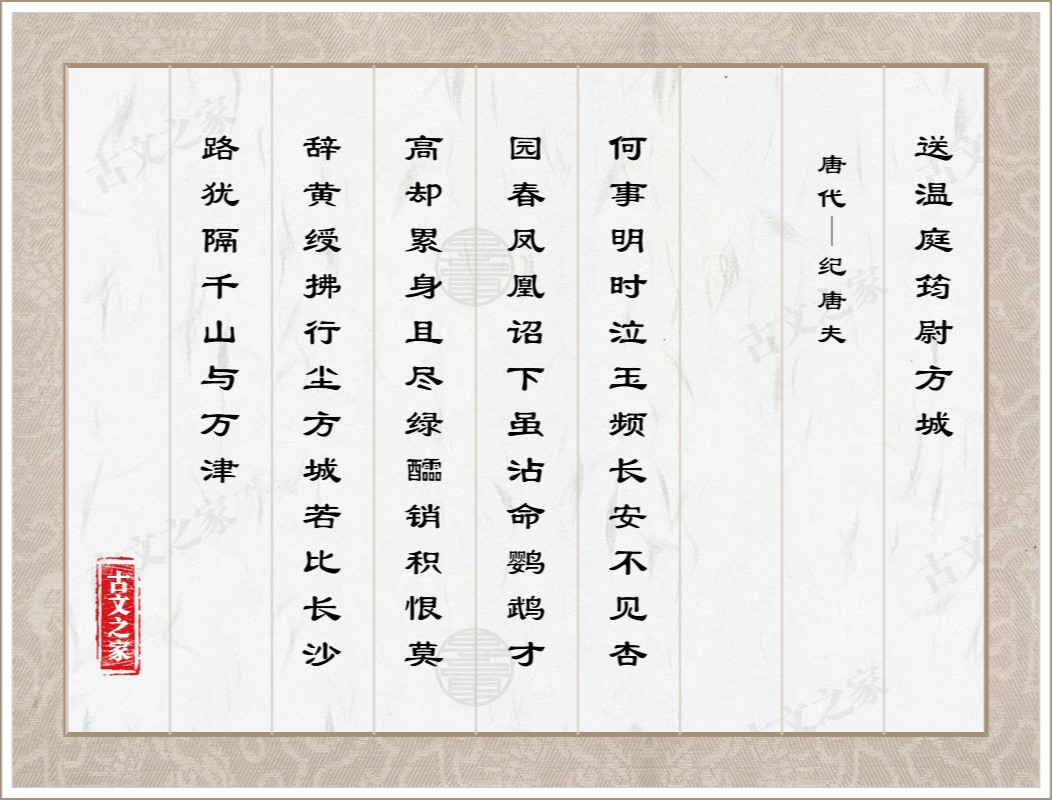 送温庭筠尉方城
唐代—纪唐夫
何事明时泣玉频长安不见杏
园春凤凰诏下虽沾命鹦鹉才
高却累身且尽绿醽销积恨莫
辞黄绶拂行尘方城若比长沙
路犹隔千山与万津
古文之家
古文之家
古文之家
古文之家
古文之家
古文之家
古文之家